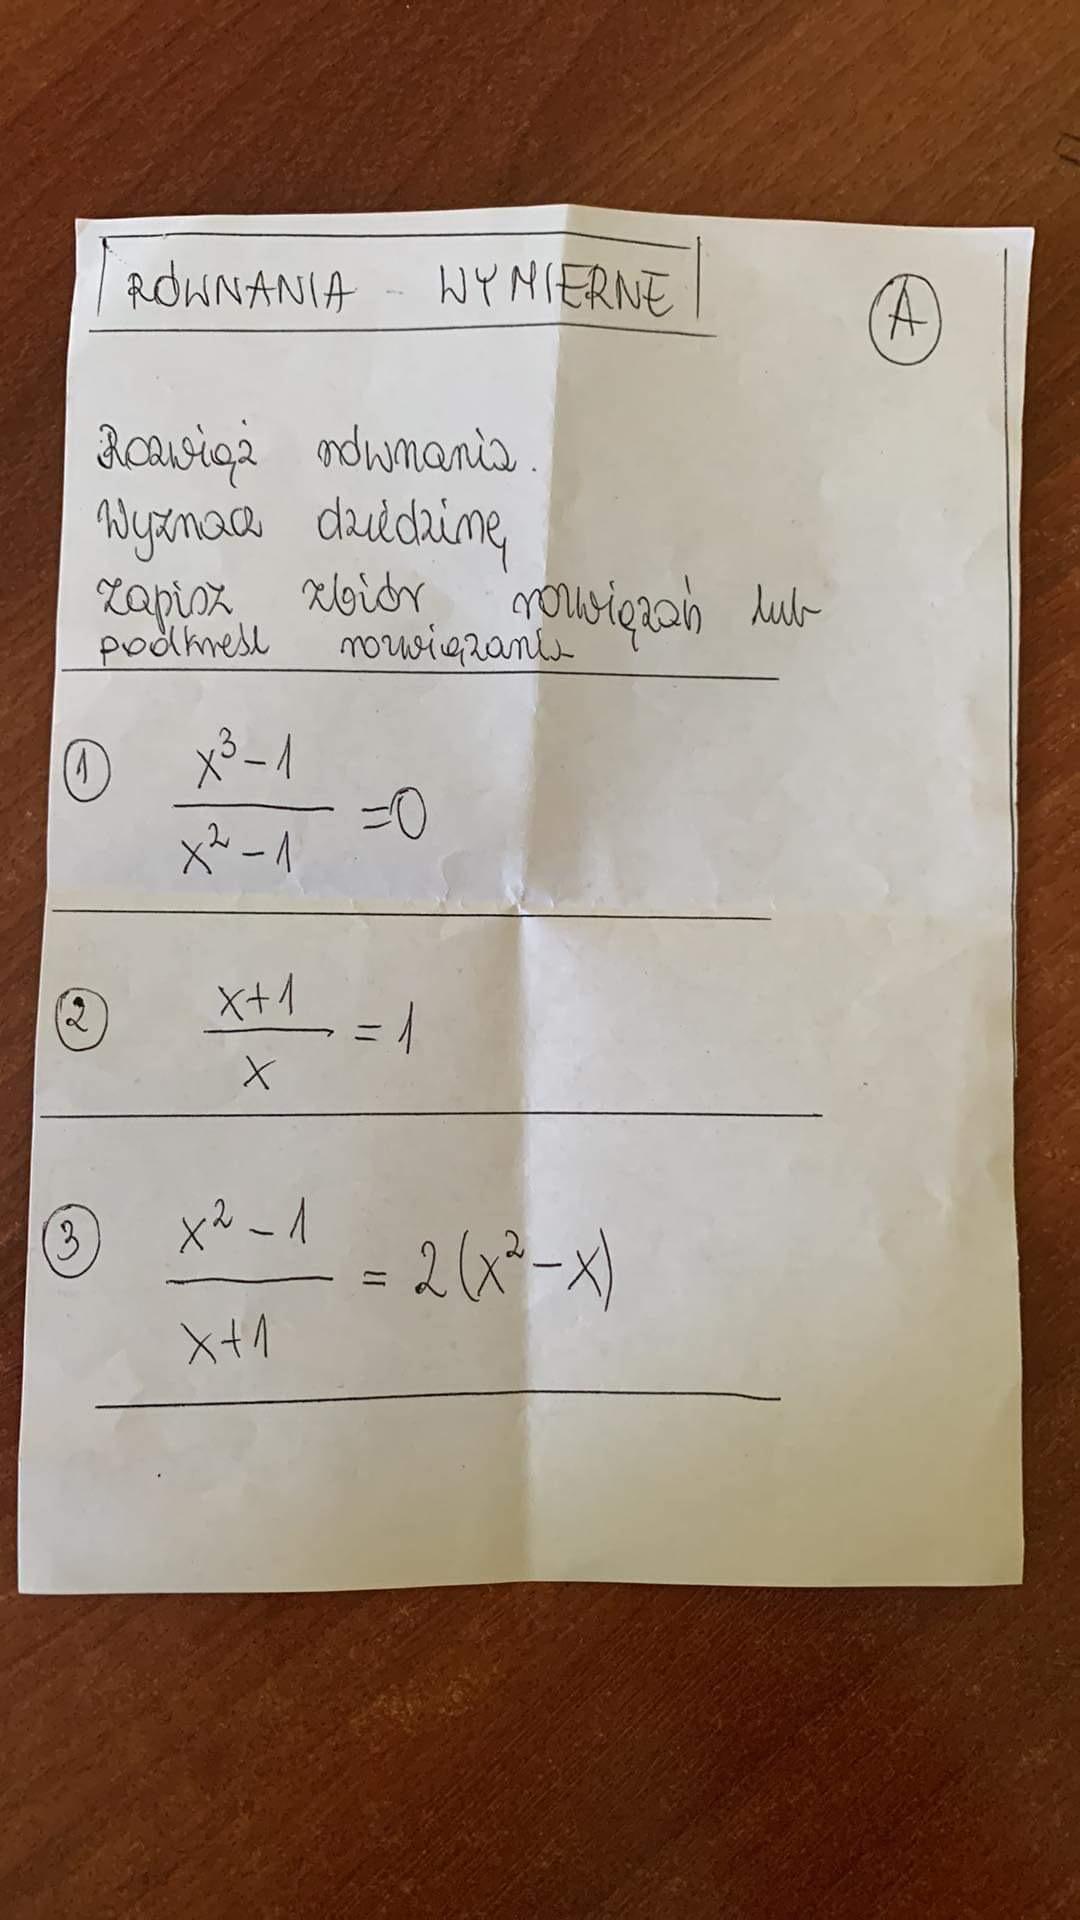 RÓWNANIA - WYMIERNE
A
Rozwiąż równania.
Wyznacz dziedzinę
Zapisz zbiór rozwiązań lub
podkreśl rozwiązania
1 x³-1 / x²-1 =0
2 x+1 / x = 1
3 x²-1 / x+1 = 2(x²-x)